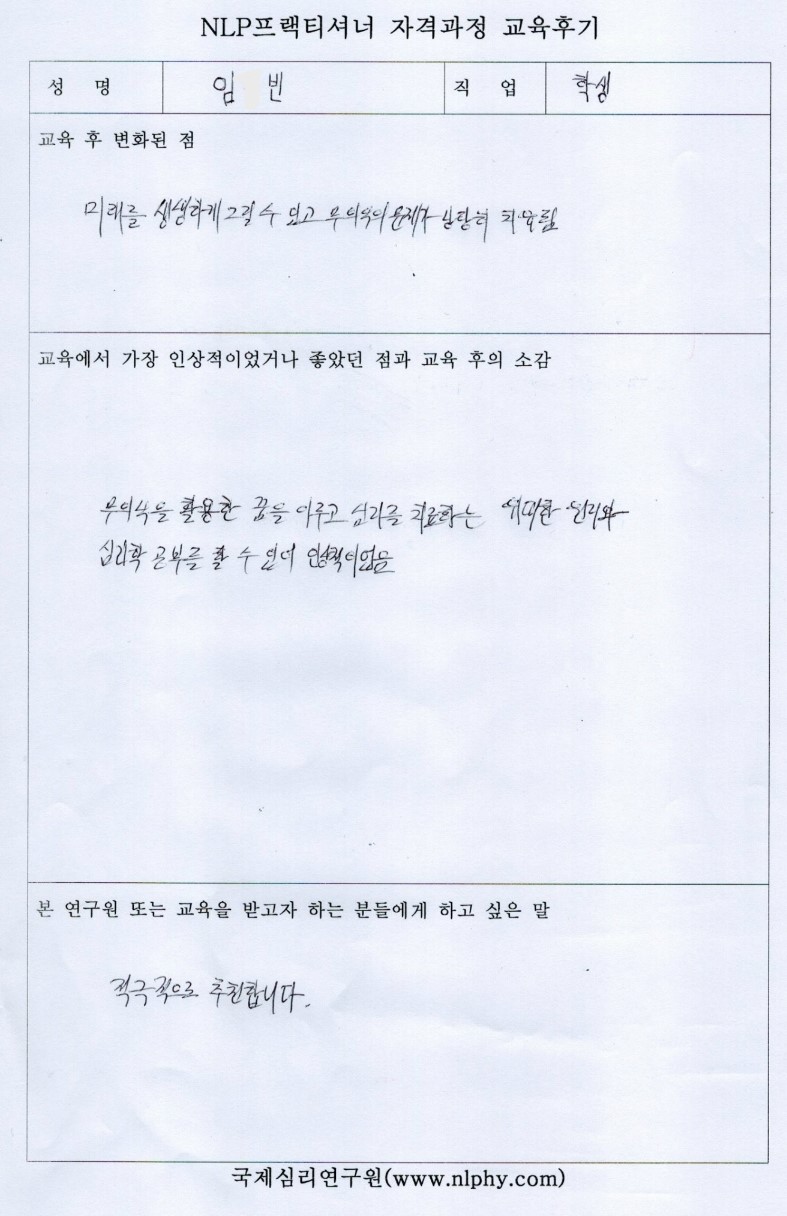 NLP프랙티셔너 자격과정 교육후기
성 명 임 빈 직 업 학생
교육 후 변화된 점
미래를 생생하게 그릴 수 있고 무의식의 문제가 상당히 치유됨
교육에서 가장 인상적이었거나 좋았던 점과 교육 후의 소감
무의식을 활용한 꿈을 이루고 심리를 치료하는 위대한 원리와
심리학 공부를 할 수 있어 인상적이었음
본 연구원 또는 교육을 받고자 하는 분들에게 하고 싶은 말
적극적으로 추천합니다.
국제심리연구원(www.nlphy.com)